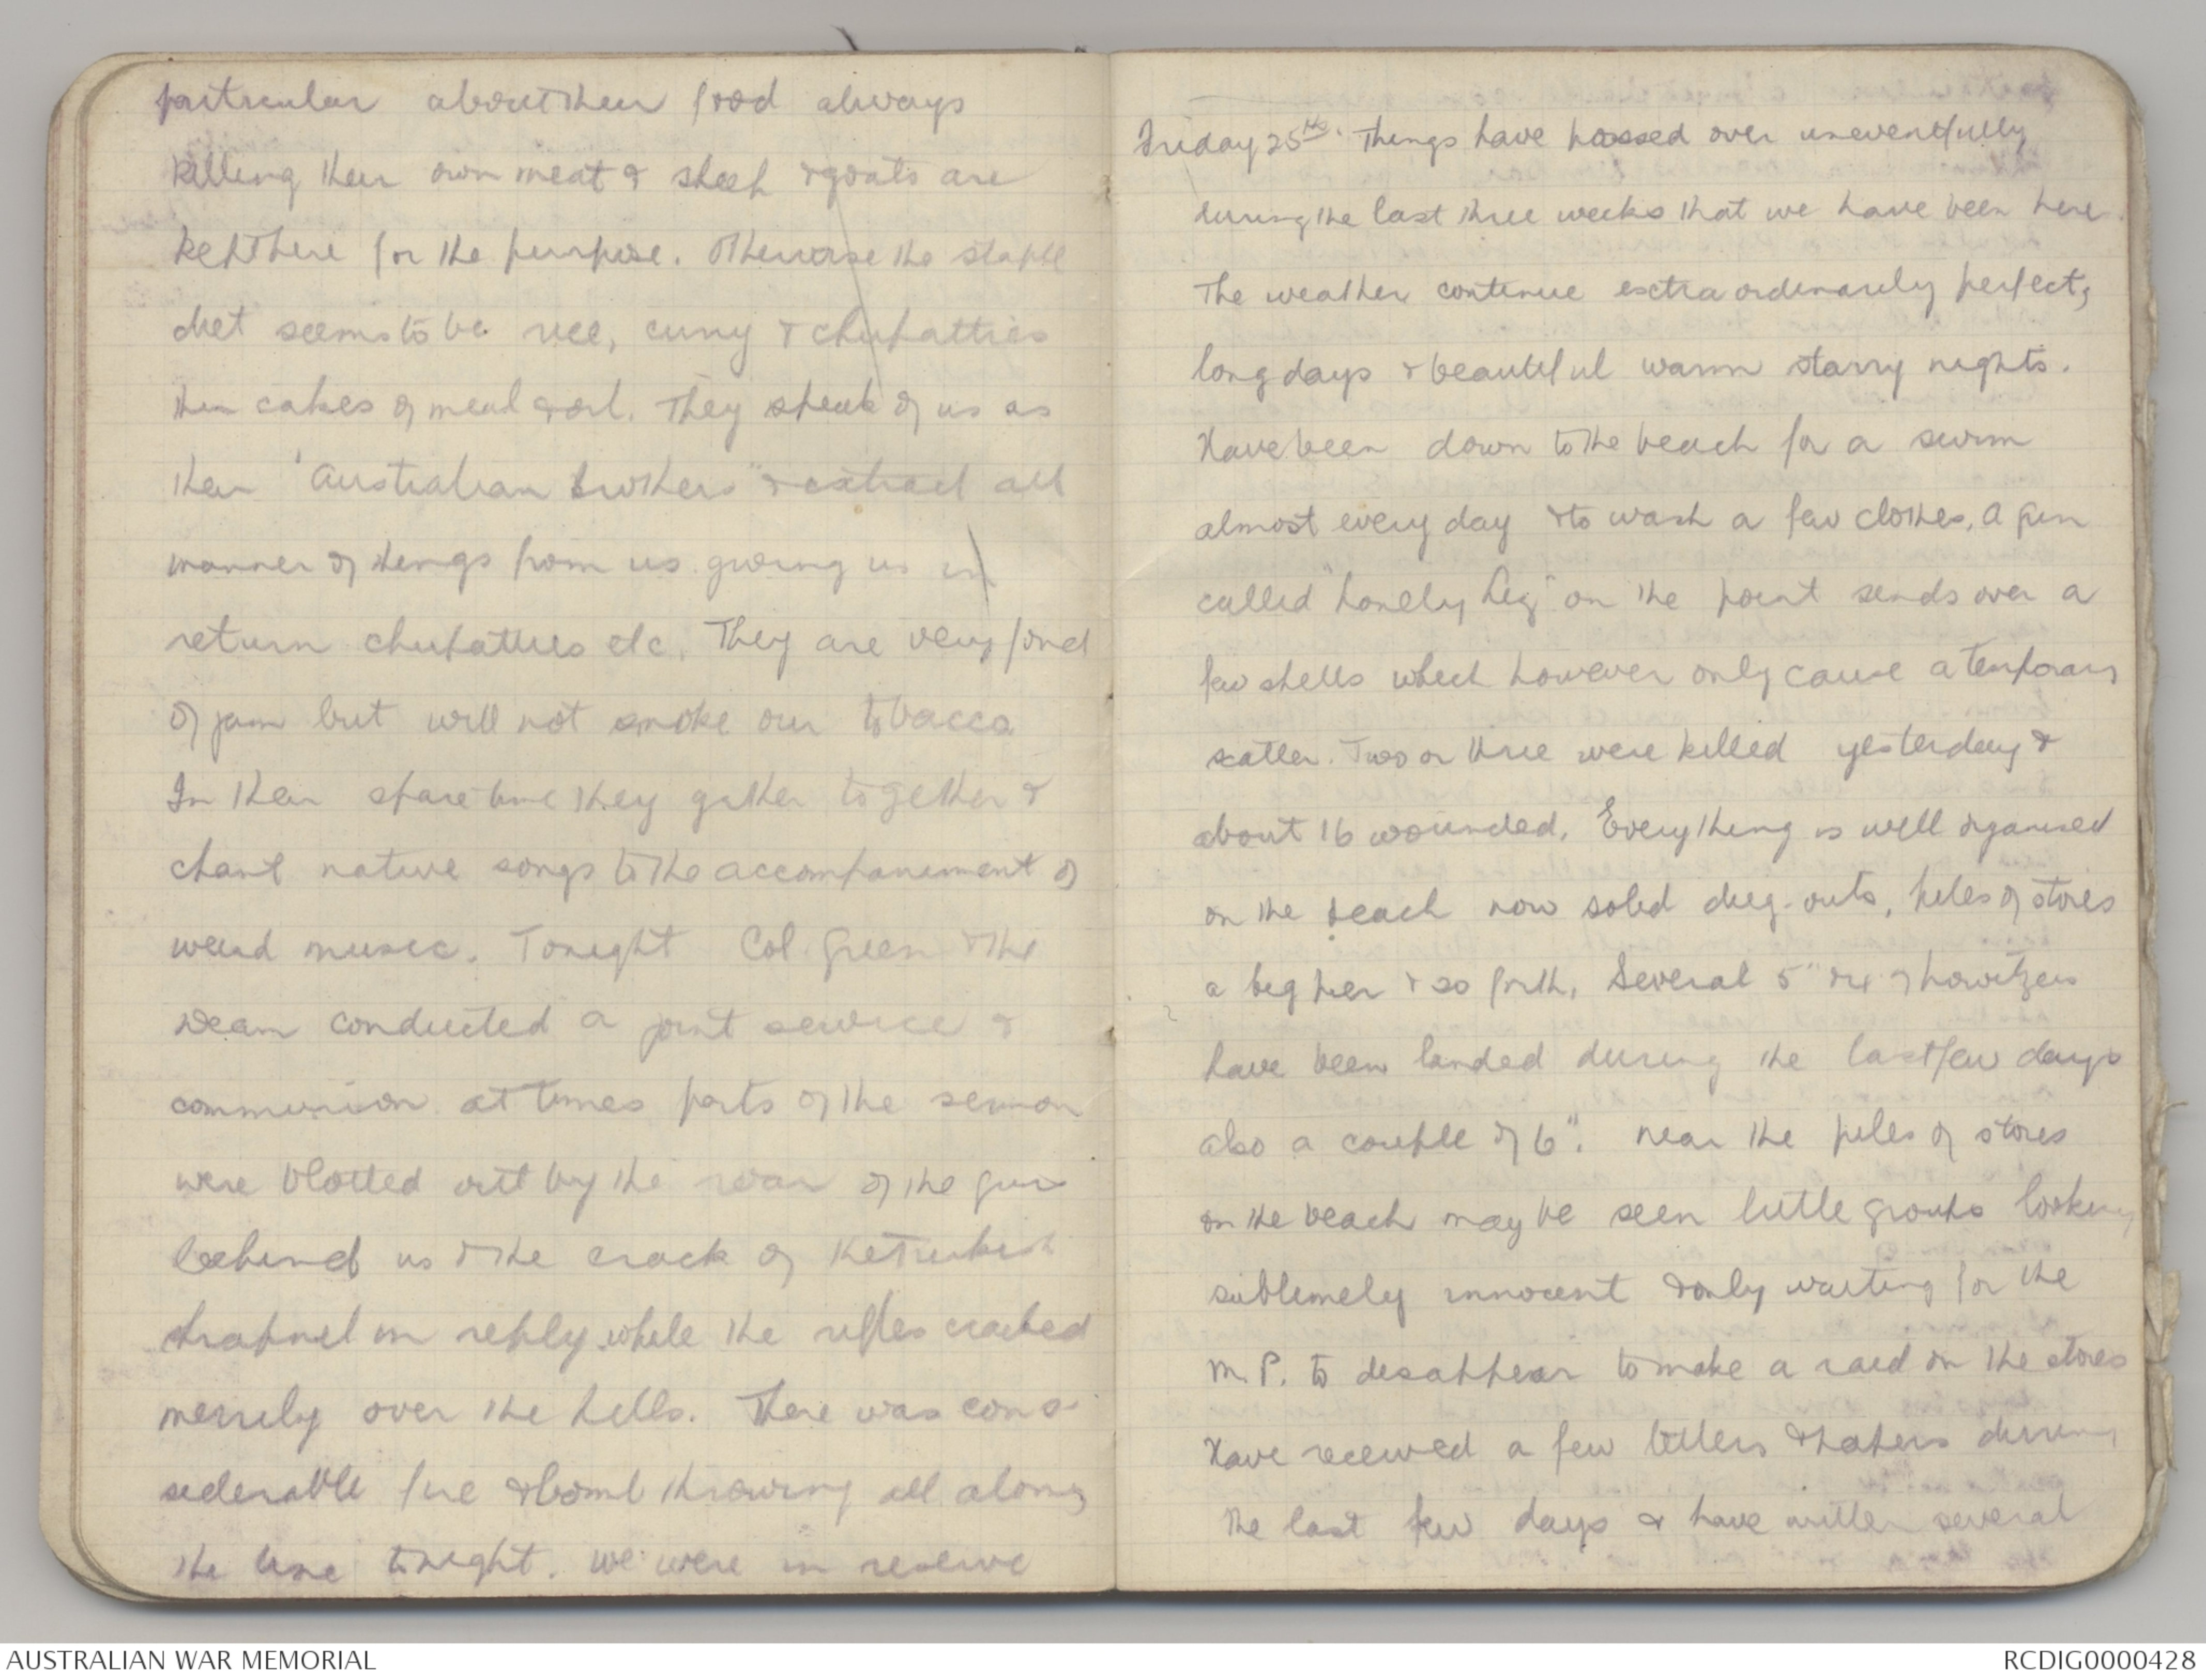 particular about their food always
killing their own meat & sheep & goats are
kept here for the purpose. Otherwise the staple
diet seems to be rice, curry & chupatties
thin cakes of meal & oil. They speak of us as
their "Australian brothers" & extract all
manner of things from us giving us in
return chupatties etc. They are very fond
of jam but will not smoke our tobacco
In their spare time they gather together &
chant native songs to the accompaniment of
weird music. Tonight Col. Green & the
Dean conducted a joint service &
communion at times parts of the sermon
were blotted out by the roar of the guns
behind us & the crack of the Turkish
shrapnel in reply while the rifles cracked
merrily over the hills. There was con-
siderable fire & bomb throwing all along
the line tonight. We were in reserve
Friday 25th. Things have passed over uneventfully
during the last three weeks that we have been here.
The weather continue extraordinarily perfect,
long days & beautiful warm starry nights.
Have been down to the beach for a swim
almost every day & to wash a few clothes, a gun
called "Lonely Liz" on the point sends over a
few shells which however only cause a temporary
scatter. Two or three were killed yesterday &
about 16 wounded. Everything is well organised
on the beach now solid dug-outs, piles of stores
a big pier & so forth. Several 5" howitzers
have been landed during the last few days
also a couple of 6". Near the piles of stores
on the beach may be seen little groups looking
sublimely innocent & only waiting for the
M.P. to disappear to make a raid on the stores
Have received a few letters & papers during
the last few days & have written several
AUSTRALIAN WAR MEMORIAL
RCDIG0000428